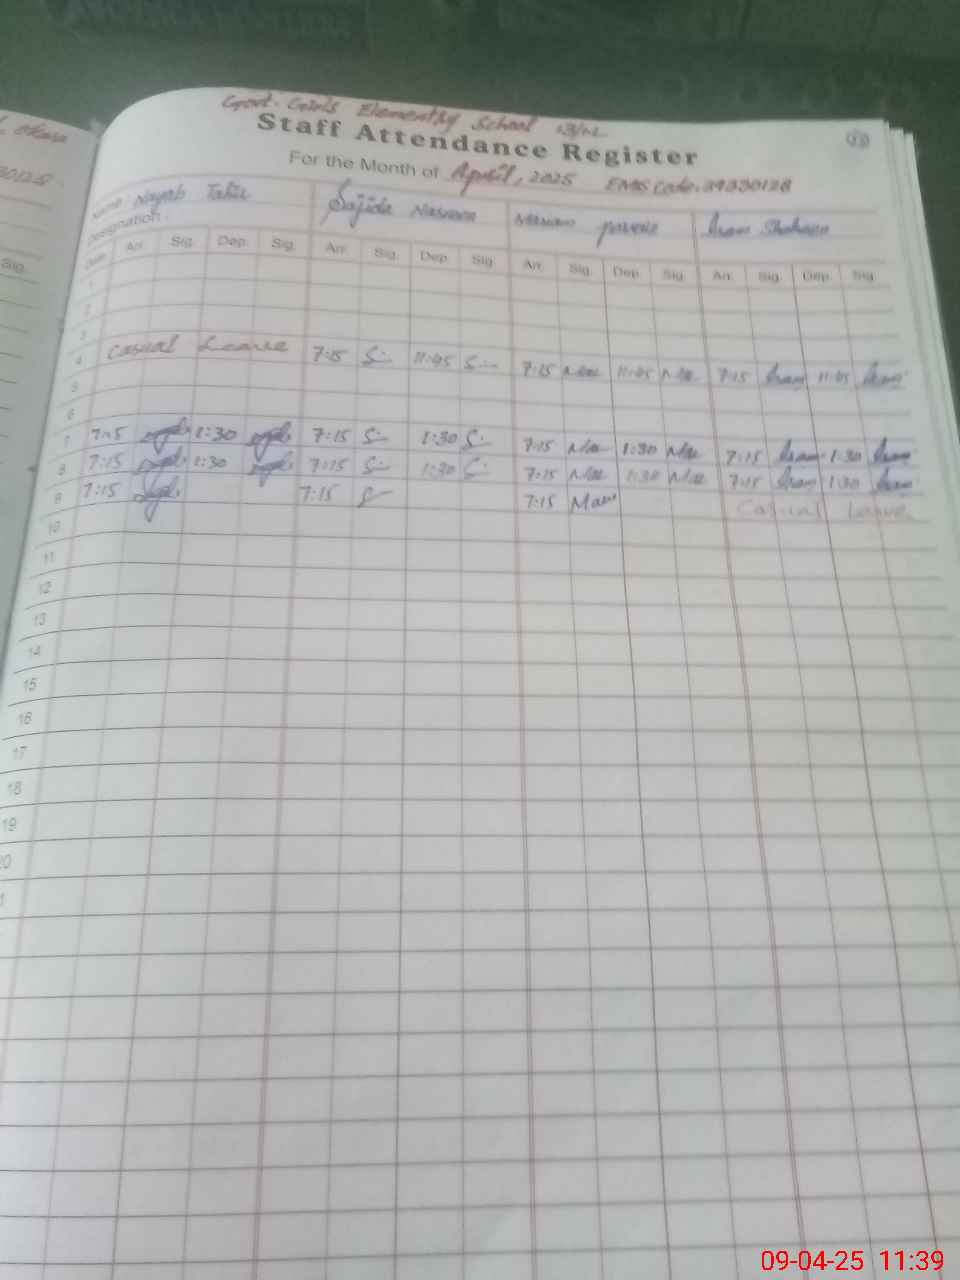 Okara
30128.
Sig.
Govt. Girls Elementry School 13/1L
Staff Attendance Register
For the Month of April, 2025 EMIS Code. 39330128
Name Nayab Tahir Sajida Nasreen Mariam parveen Iram Shaheen
Designation
Date Arr. Sig. Dep. Sig. Arr. Sig. Dep. Sig. Arr. Sig. Dep. Sig. Arr. Sig. Dep. Sig.
1
2
3
4 Casual Leave 7:15 S 11:45 S 7:15 Mar 11:45 Mar 7:15 Iram 11:45 Iram
5
6
7 7:15 1:30 7:15 S 1:30 S 7:15 Mar 1:30 Mar 7:15 Iram 1:30 Iram
8 7:15 1:30 7:15 S 1:30 S 7:15 Mar 1:30 Mar 7:15 Iram 1:30 Iram
9 7:15 7:15 S 7:15 Mar Casual Leave
10
11
12
13
14
15
16
17
18
19
20
09-04-25 11:39